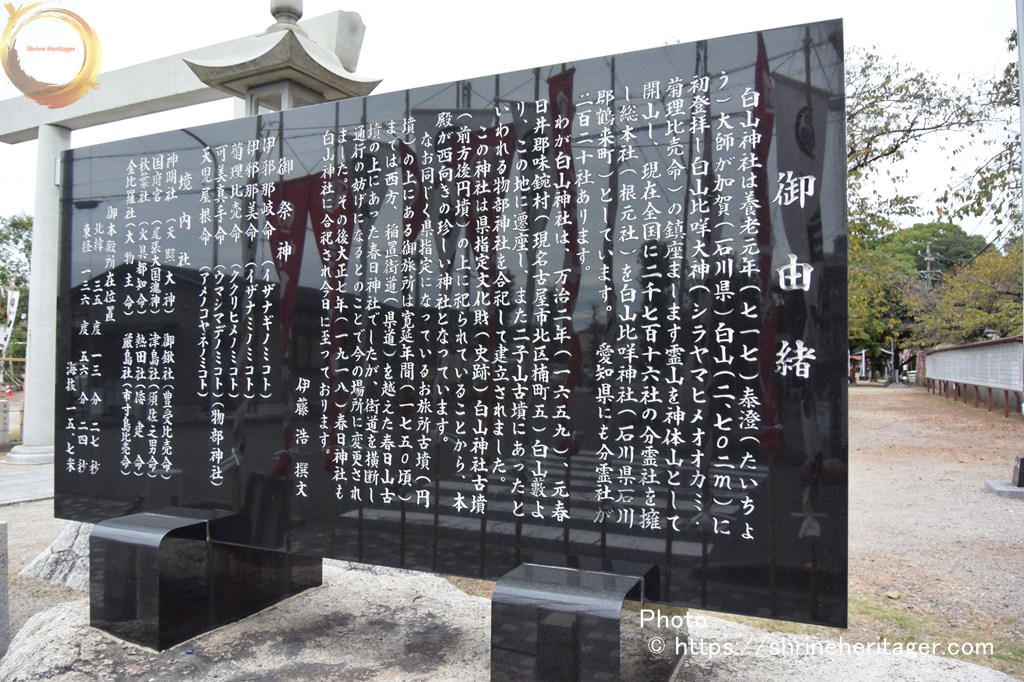 御由緒
白山神社は養老元年(七一七)泰澄(たいちょ
う)大師が加賀(石川県)白山(二、七〇二m)に
初登拝し白山比咩大神(シラヤマヒメオオカミ・
菊理比売命)の鎮座まします霊山を神体山として
開山し、現在全国に二千七百十六社の分霊社を擁
し総本社(根元社)を白山比咩神社(石川県石川
郡鶴来町)としています。 愛知県にも分霊社が
二百二十社あります。
わが白山神社は、万治二年(一六五九)、元春
日井郡味鋺村(現名古屋市北区楠町五)白山藪よ
り、この地に遷座し、また二子山古墳にあったと
いわれる物部神社を合祀して建立されました。
この神社は県指定文化財(史跡)白山神社古墳
(前方後円墳)の上に祀られていることから、本
殿が西向きの珍しい神社となっています。
なお同じく県指定になっているお旅所古墳(円
墳)の上にある御旅所は寛延年間(一七五〇頃)
までは西方、稲置街道(県道)を越えた春日山古
墳の上にあった春日神社でしたが、街道を横断し
通行の妨げになるとのことで今の場所に変更され
ました。その後大正七年(一九一八)春日神社も
白山神社に合祀され今日に至っております。
伊藤 浩 撰文
御祭神
伊邪那岐命(イザナギノミコト)
伊邪那美命(イザナミノミコト)
菊理比売命(ククリヒメノミコト)
可美真手命(ウマシマデノミコト)(物部神社)
天児屋根命(アメノコヤネノミコト)
境内社
神明社(天照大神) 御鍬社(豊受比売命)
国府宮(尾張大国魂神) 津島社(須佐之男命)
秋葉社(火具都知命) 熱田社(倭建命)
金比羅社(大物主命) 厳島社(市寸島比売命)
御本殿所在位置
北緯 三五度一三分二七秒
東経 一三六度五六分二四秒
海抜 一五・七米
Shrine Heritager
Photo
© https://shrineheritager.com/